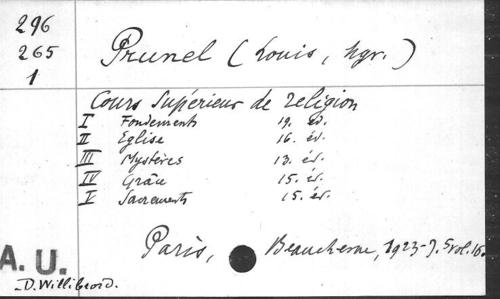 296
265
1
Prunel (Louis, Mgr.)
Cours Supérieur de religion
I Fondements 19. éd.
II Eglise 16. éd.
III Mystères 13. éd.
IV Grâce 15. éd.
V Sacrements 15. éd.
Paris, Beauchesne, 1925-7. 5 vol. 16.
A. U.
D. Willibrord.